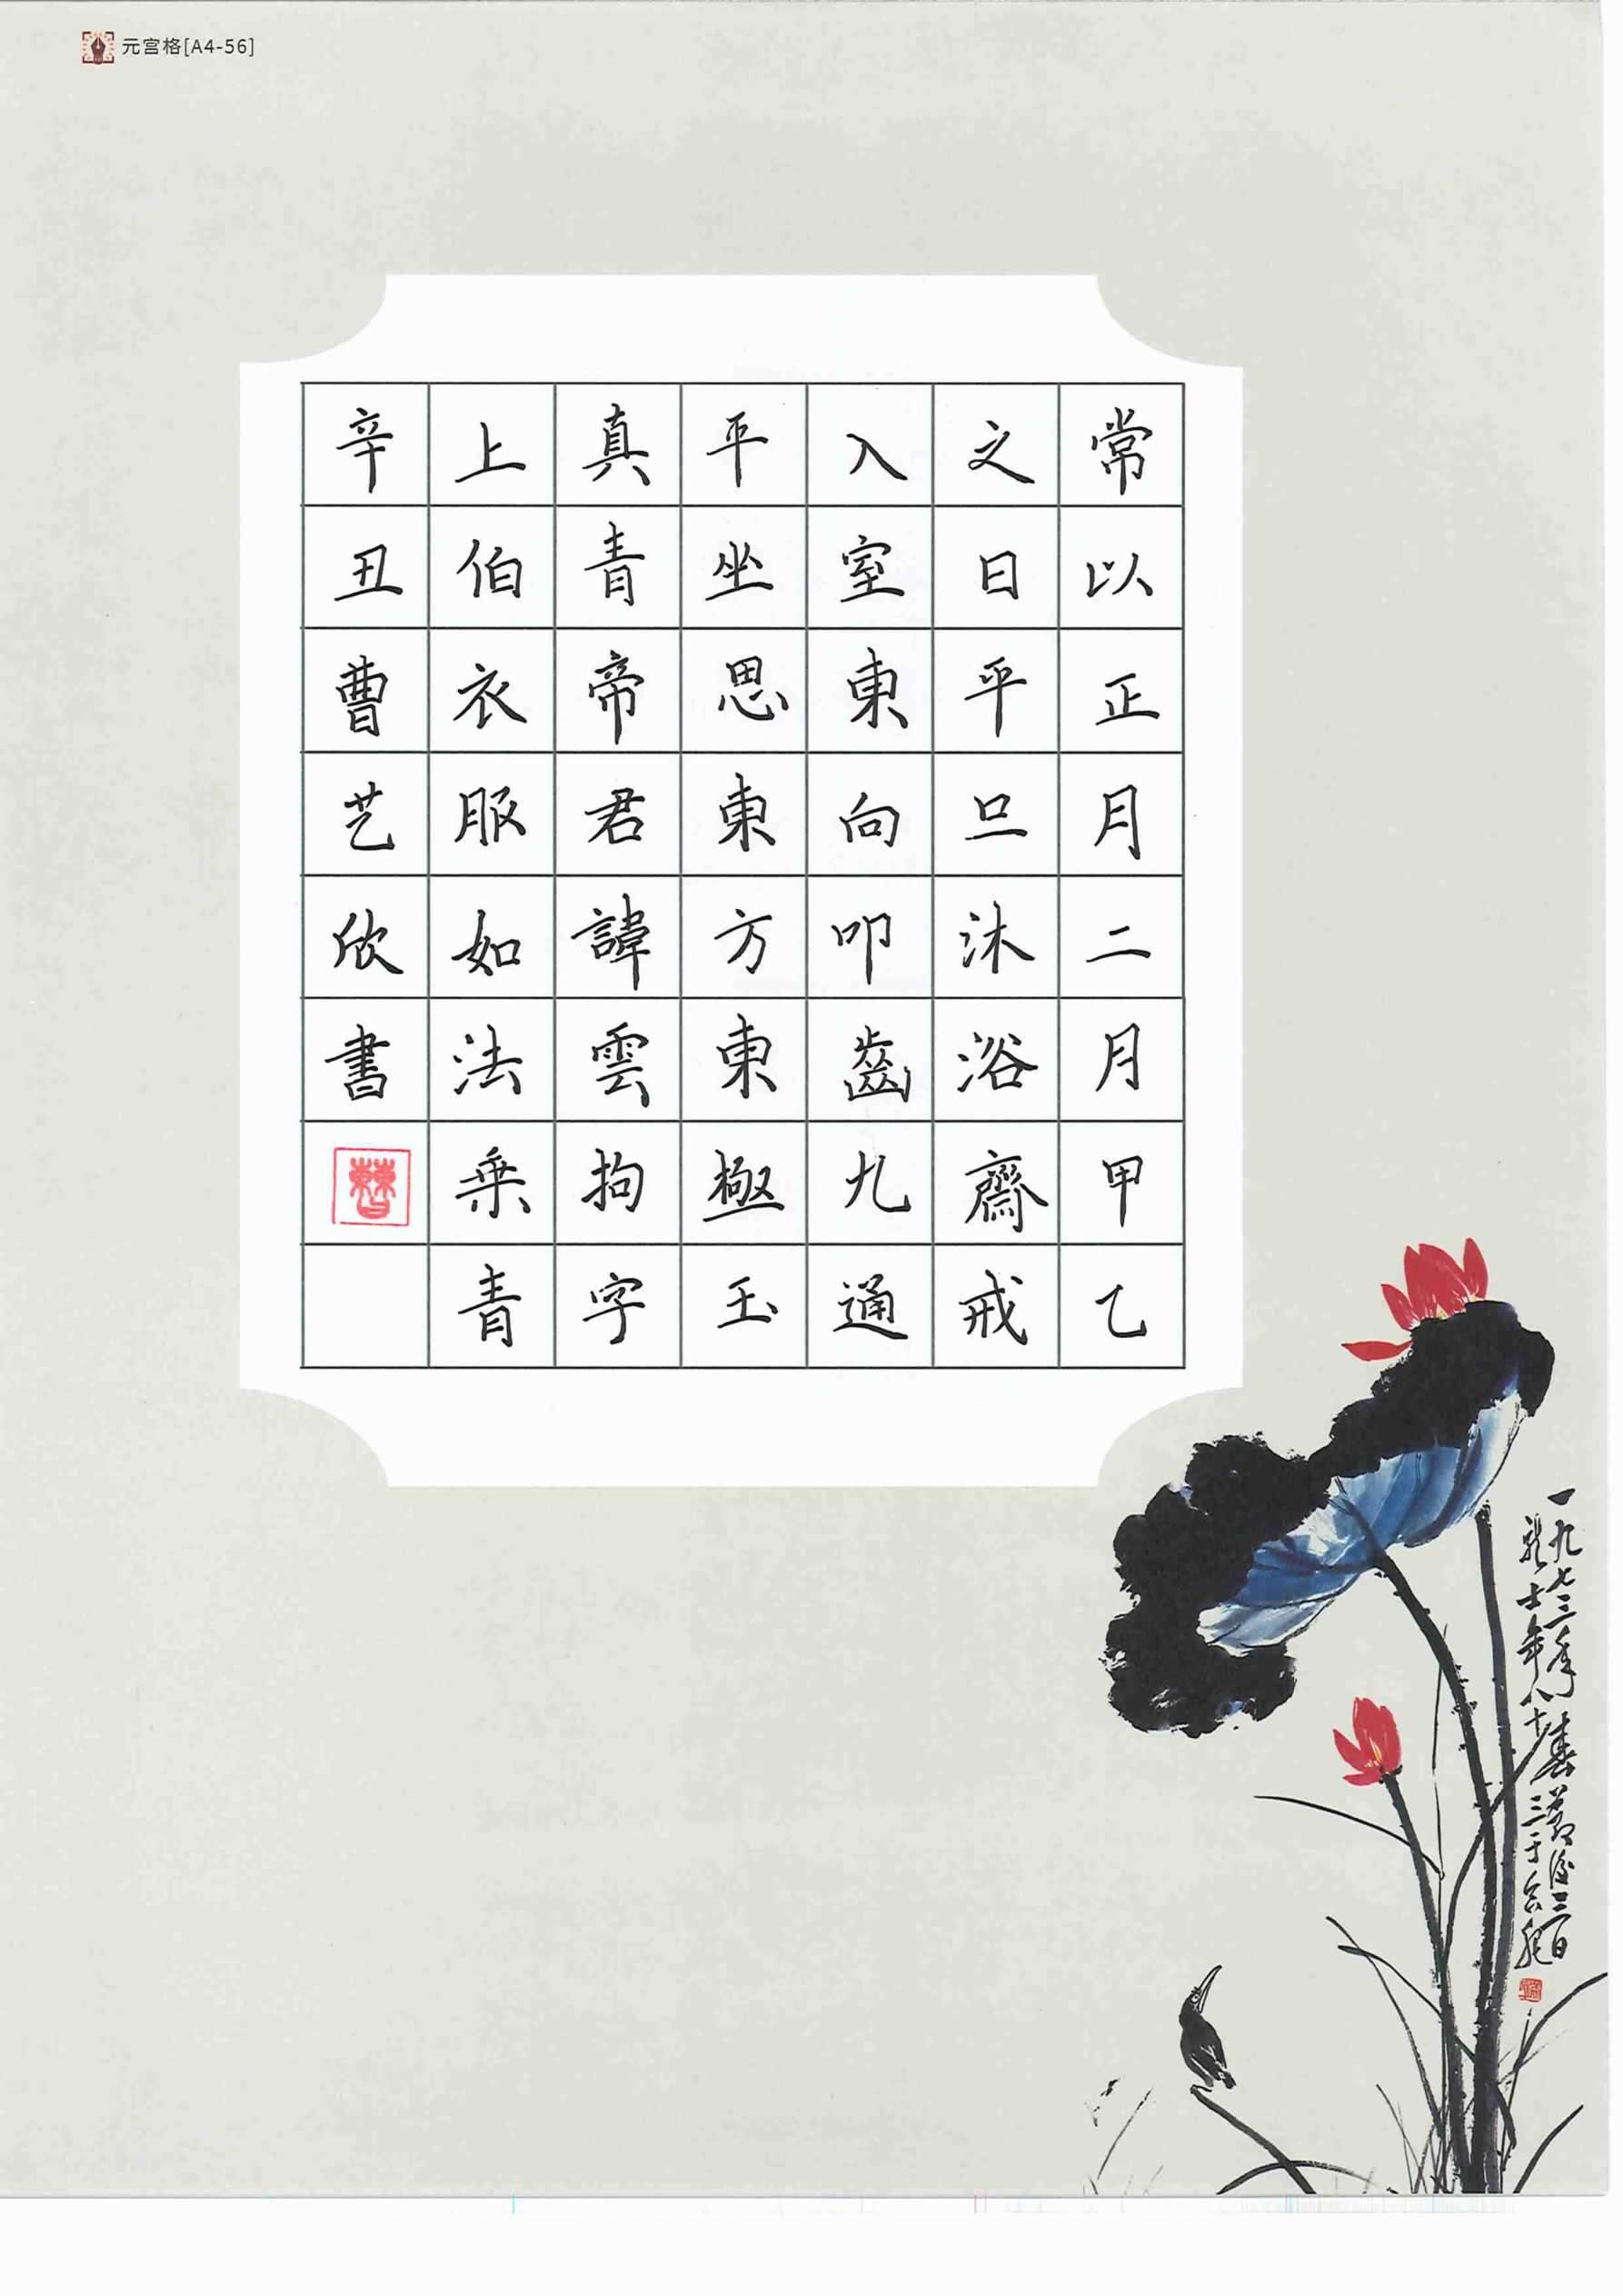 元宫格[A4-56]
常以正月二月甲乙
之日平旦沐浴齋戒
入室東向叩齒九通
平坐思東方東極玉
真青帝君諱雲拘字
上伯衣服如法乗青
辛丑曹艺欣書
曹